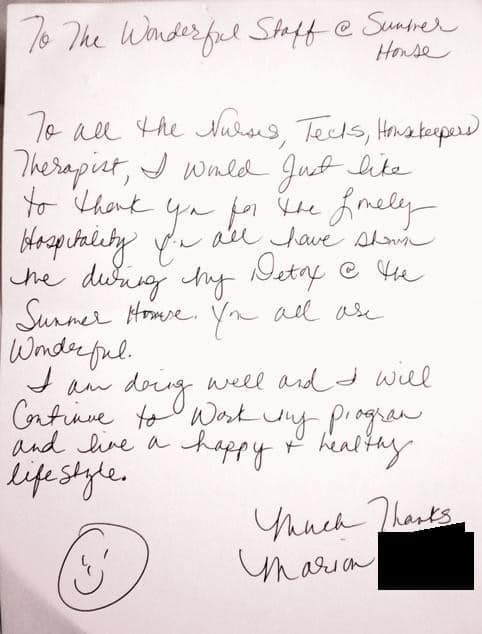 To The Wonderful Staff @ Summer
House
To all the Nurses, Techs, Housekeepers
Therapist, I would Just like
to thank you for the lovely
Hospitality you all have shown
me during my Detox @ the
Summer House. You all are
Wonderful.
I am doing well and I will
Continue to Work my program
and live a happy + healthy
lifestyle.
Much Thanks
Marion